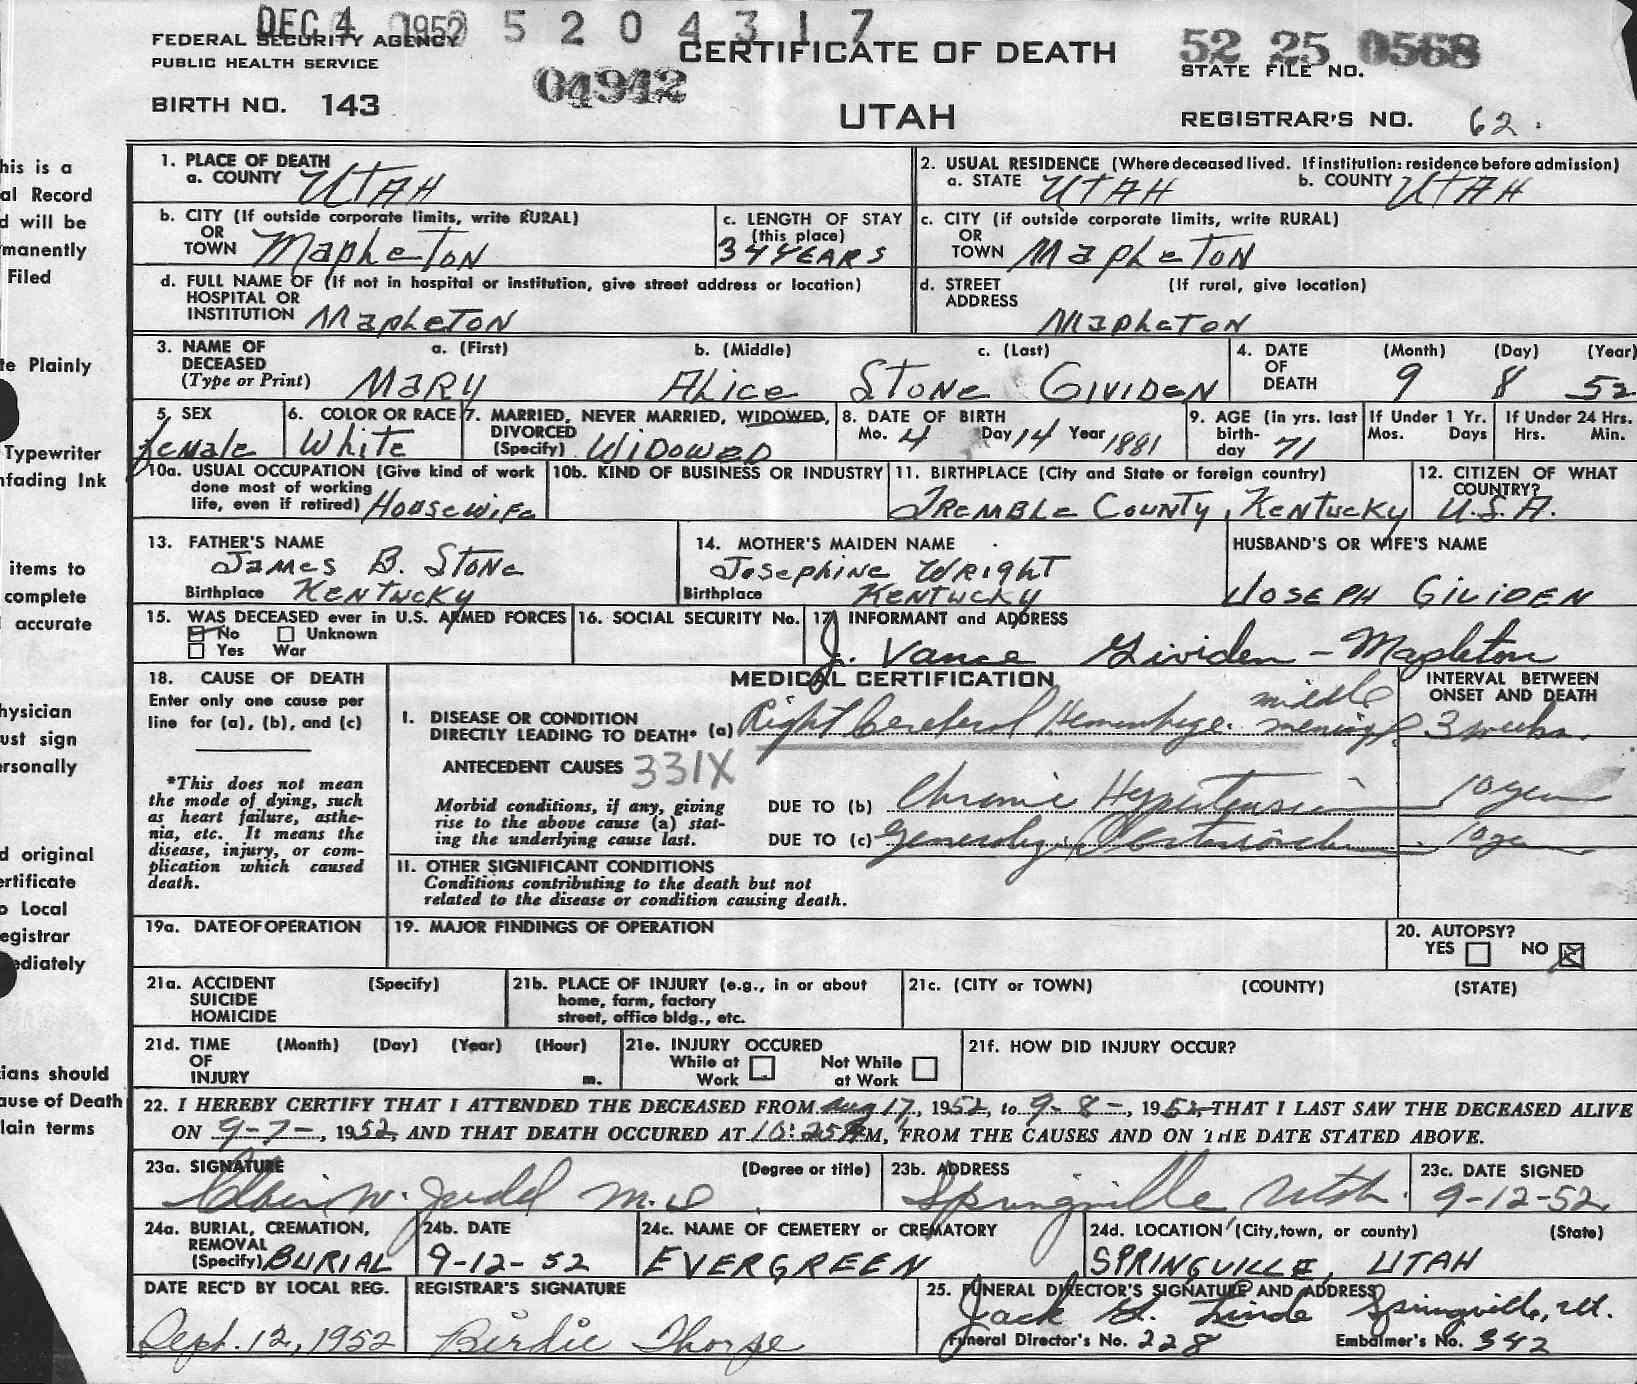 DEC 4 1952 5 2 0 4 3 1 7
FEDERAL SECURITY AGENCY
PUBLIC HEALTH SERVICE
CERTIFICATE OF DEATH
52 25 0568
STATE FILE NO.
04942
BIRTH NO. 143
UTAH
REGISTRAR'S NO. 62.
his is a
al Record
d will be
manently
Filed
te Plainly
Typewriter
nfading Ink
items to
complete
accurate
hysician
ust sign
ersonally
d original
ertificate
o Local
egistrar
ediately
ians should
ause of Death
lain terms
1. PLACE OF DEATH
a. COUNTY UTAH
2. USUAL RESIDENCE (Where deceased lived. If institution: residence before admission)
a. STATE UTAH b. COUNTY UTAH
b. CITY (If outside corporate limits, write RURAL)
OR
TOWN Mapleton
c. LENGTH OF STAY
(this place)
34 YEARS
c. CITY (if outside corporate limits, write RURAL)
OR
TOWN Mapleton
d. FULL NAME OF (If not in hospital or institution, give street address or location)
HOSPITAL OR
INSTITUTION Mapleton
d. STREET (If rural, give location)
ADDRESS
Mapleton
3. NAME OF DECEASED (Type or Print)
a. (First) b. (Middle) c. (Last)
MARY ALICE STONE GIVIDEN
4. DATE OF DEATH
(Month) (Day) (Year)
9 8 52
5. SEX
female
6. COLOR OR RACE
White
7. MARRIED, NEVER MARRIED, WIDOWED,
DIVORCED
(Specify) WIDOWED
8. DATE OF BIRTH
Mo. 4 Day 14 Year 1881
9. AGE (in yrs. last
birth-
day 71
If Under 1 Yr.
Mos. Days
If Under 24 Hrs.
Hrs. Min.
10a. USUAL OCCUPATION (Give kind of work
done most of working
life, even if retired) Housewife
10b. KIND OF BUSINESS OR INDUSTRY
11. BIRTHPLACE (City and State or foreign country)
Tremble County, Kentucky
12. CITIZEN OF WHAT
COUNTRY?
U.S.A.
13. FATHER'S NAME
James B. Stone
Birthplace Kentucky
14. MOTHER'S MAIDEN NAME
Josephine Wright
Birthplace Kentucky
HUSBAND'S OR WIFE'S NAME
JOSEPH GIVIDEN
15. WAS DECEASED ever in U.S. ARMED FORCES
No Unknown
Yes War
16. SOCIAL SECURITY No.
17. INFORMANT and ADDRESS
J. Vance Gividen - Mapleton
18. CAUSE OF DEATH
Enter only one cause per
line for (a), (b), and (c)
*This does not mean
the mode of dying, such
as heart failure, asthe-
nia, etc. It means the
disease, injury, or com-
plication which caused
death.
MEDICAL CERTIFICATION
INTERVAL BETWEEN
ONSET AND DEATH
I. DISEASE OR CONDITION
DIRECTLY LEADING TO DEATH* (a) Right Cerebral Hemorrhage. middle 3 weeks.
ANTECEDENT CAUSES 331X
Morbid conditions, if any, giving
rise to the above cause (a) stat-
ing the underlying cause last.
DUE TO (b) Chronic Hypertension 10 years
DUE TO (c) 10 years
II. OTHER SIGNIFICANT CONDITIONS
Conditions contributing to the death but not
related to the disease or condition causing death.
19a. DATE OF OPERATION
19. MAJOR FINDINGS OF OPERATION
20. AUTOPSY?
YES NO
21a. ACCIDENT (Specify)
SUICIDE
HOMICIDE
21b. PLACE OF INJURY (e.g., in or about
home, farm, factory
street, office bldg., etc.
21c. (CITY or TOWN) (COUNTY) (STATE)
21d. TIME (Month) (Day) (Year) (Hour)
OF
INJURY m.
21e. INJURY OCCURED
While at Work Not While at Work
21f. HOW DID INJURY OCCUR?
22. I HEREBY CERTIFY THAT I ATTENDED THE DECEASED FROM Aug 17, 1952, to 9-8-, 1952, THAT I LAST SAW THE DECEASED ALIVE
ON 9-7-, 1952, AND THAT DEATH OCCURED AT 10:25 M, FROM THE CAUSES AND ON THE DATE STATED ABOVE.
23a. SIGNATURE (Degree or title)
W. Judd M.D.
23b. ADDRESS
Springville Utah.
23c. DATE SIGNED
9-12-52.
24a. BURIAL, CREMATION,
REMOVAL
(Specify) BURIAL
24b. DATE
9-12-52
24c. NAME OF CEMETERY or CREMATORY
EVERGREEN
24d. LOCATION (City, town, or county) (State)
SPRINGVILLE, UTAH
DATE REC'D BY LOCAL REG.
Sept. 12, 1952
REGISTRAR'S SIGNATURE
Birdie Thorpe
25. FUNERAL DIRECTOR'S SIGNATURE AND ADDRESS
Jack Springville, Ut.
Funeral Director's No. 228 Embalmer's No. 342